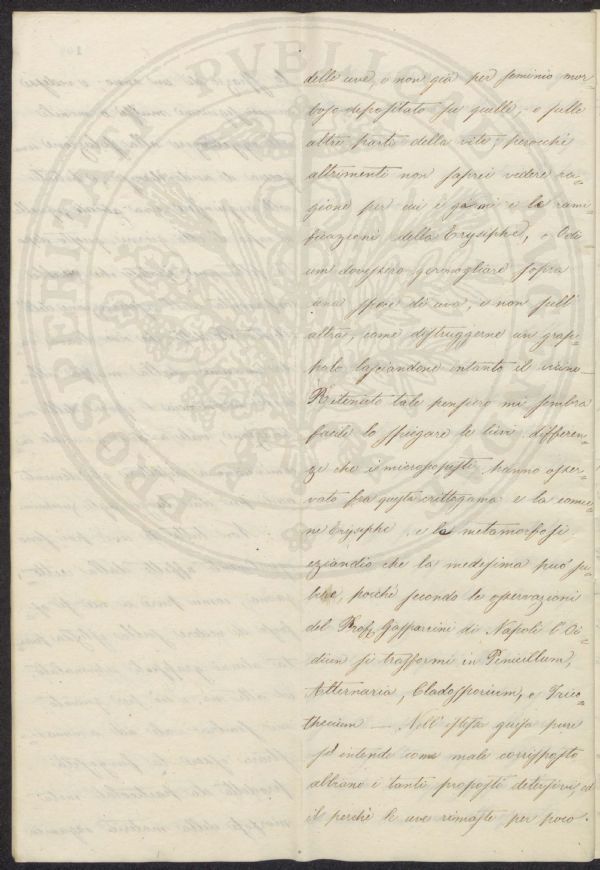 delle uve, e non già per seminio mor-
boso depositato su quelle, o sulle
altre parti della vite, perocchè
altrimenti non saprei vedere ra-
gione per cui i germi e le rami-
ficazioni della Erysiphe, o Oidi
um dovessero germogliare sopra
una specie di uva, e non sull'
altra, come distruggerne un grap-
polo lasciandone intanto il vicino _
Ritenuto tale pensiero mi sembra
facile lo spiegare le lievi differen-
ze che i microscopisti hanno osser-
vato fra questa crittogama e la comu-
ne Erysiphe, e la metamorfosi
eziandio che la medesima può su-
bire, poichè secondo le osservazioni
del Prof. Gasparrini di Napoli l'Oi-
dium si trasformi in Penicillum,
Alternaria, Cladosporium, e Trico-
thecium _ Nell' istessa guisa pure
s' intende come male corrisposto
abbiano i tanti proposti detersivi, ed
il perchè le uve rimaste per poco
PVBLICO
PROSPERITATI